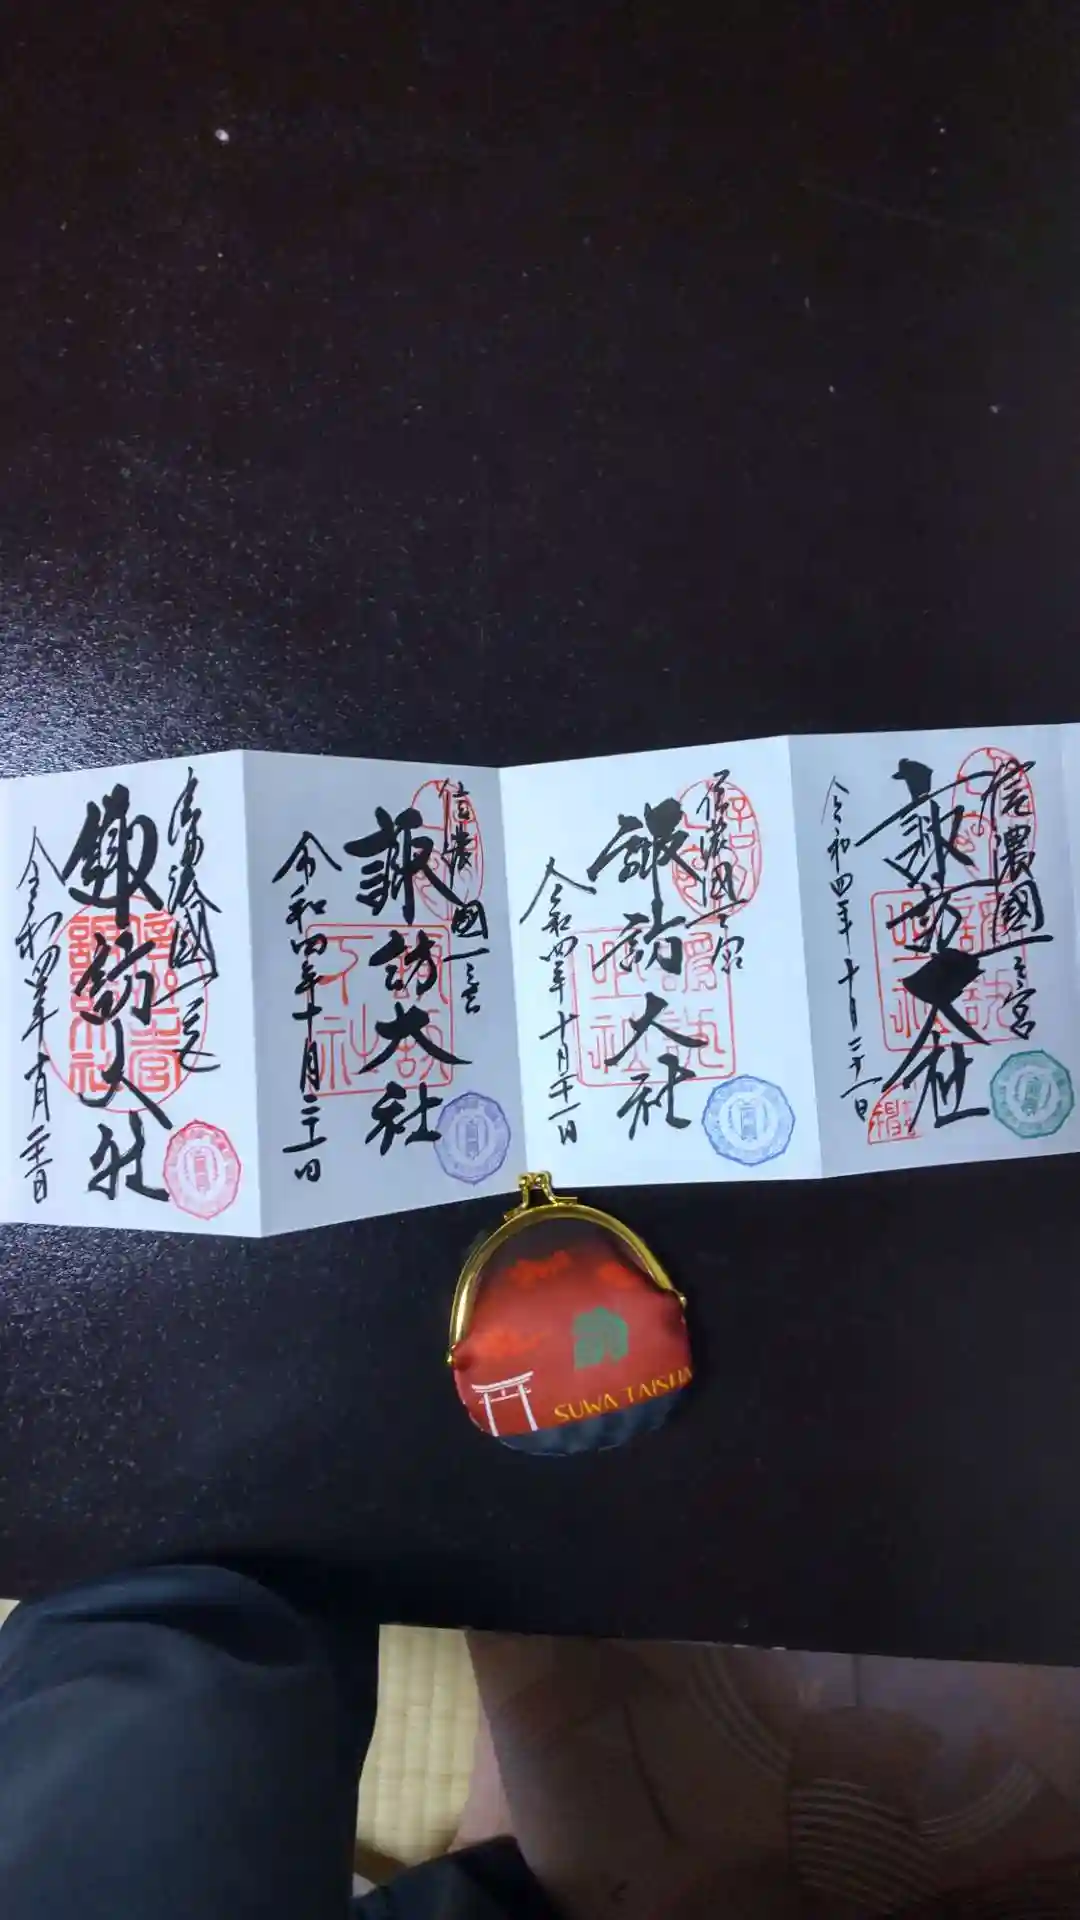 信濃國一之宮
諏訪大社
令和四年十月二十一日
信濃國一之宮
諏訪大社
令和四年十月二十一日
信濃國一之宮
諏訪大社
令和四年十月二十一日
信濃國一之宮
諏訪大社
令和四年十月二十一日
SUWA TAISHA